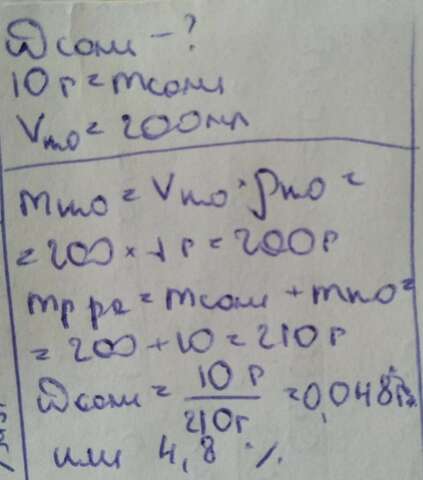 ω соли - ?
10 г = m соли
V H₂O = 200 мл
m H₂O = V H₂O · ρ H₂O =
= 200 × 1 г = 200 г
m р-ра = m соли + m H₂O =
= 200 + 10 = 210 г
ω соли = 10 г / 210 г = 0,048
или 4,8 %